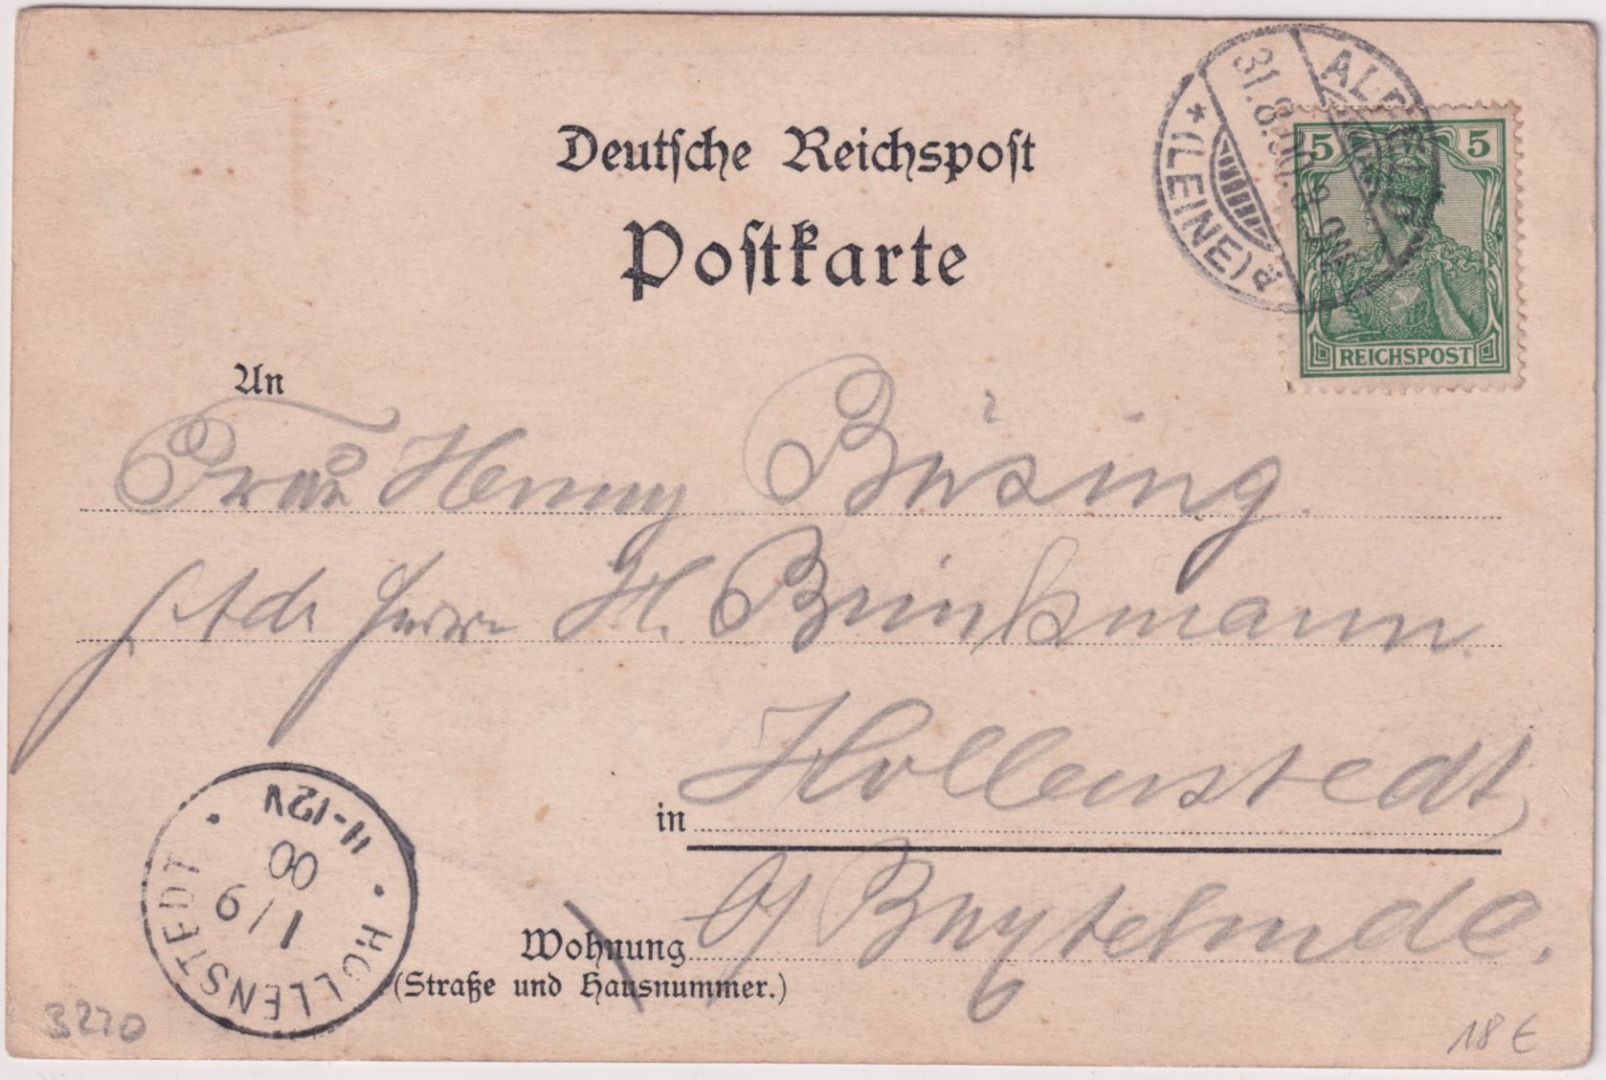 Deutsche Reichspost
Postkarte
ALFELD
31.8.00.
* (LEINE) a
5 5
REICHSPOST
An
Frau Henny Büsing.
Adr Herrn H. Brinkmann.
in Hollenstedt,
b/ Buxtehude.
Wohnung
(Straße und Hausnummer.)
HOLLENSTEDT
1/9
00
11-12V
3270
18 €